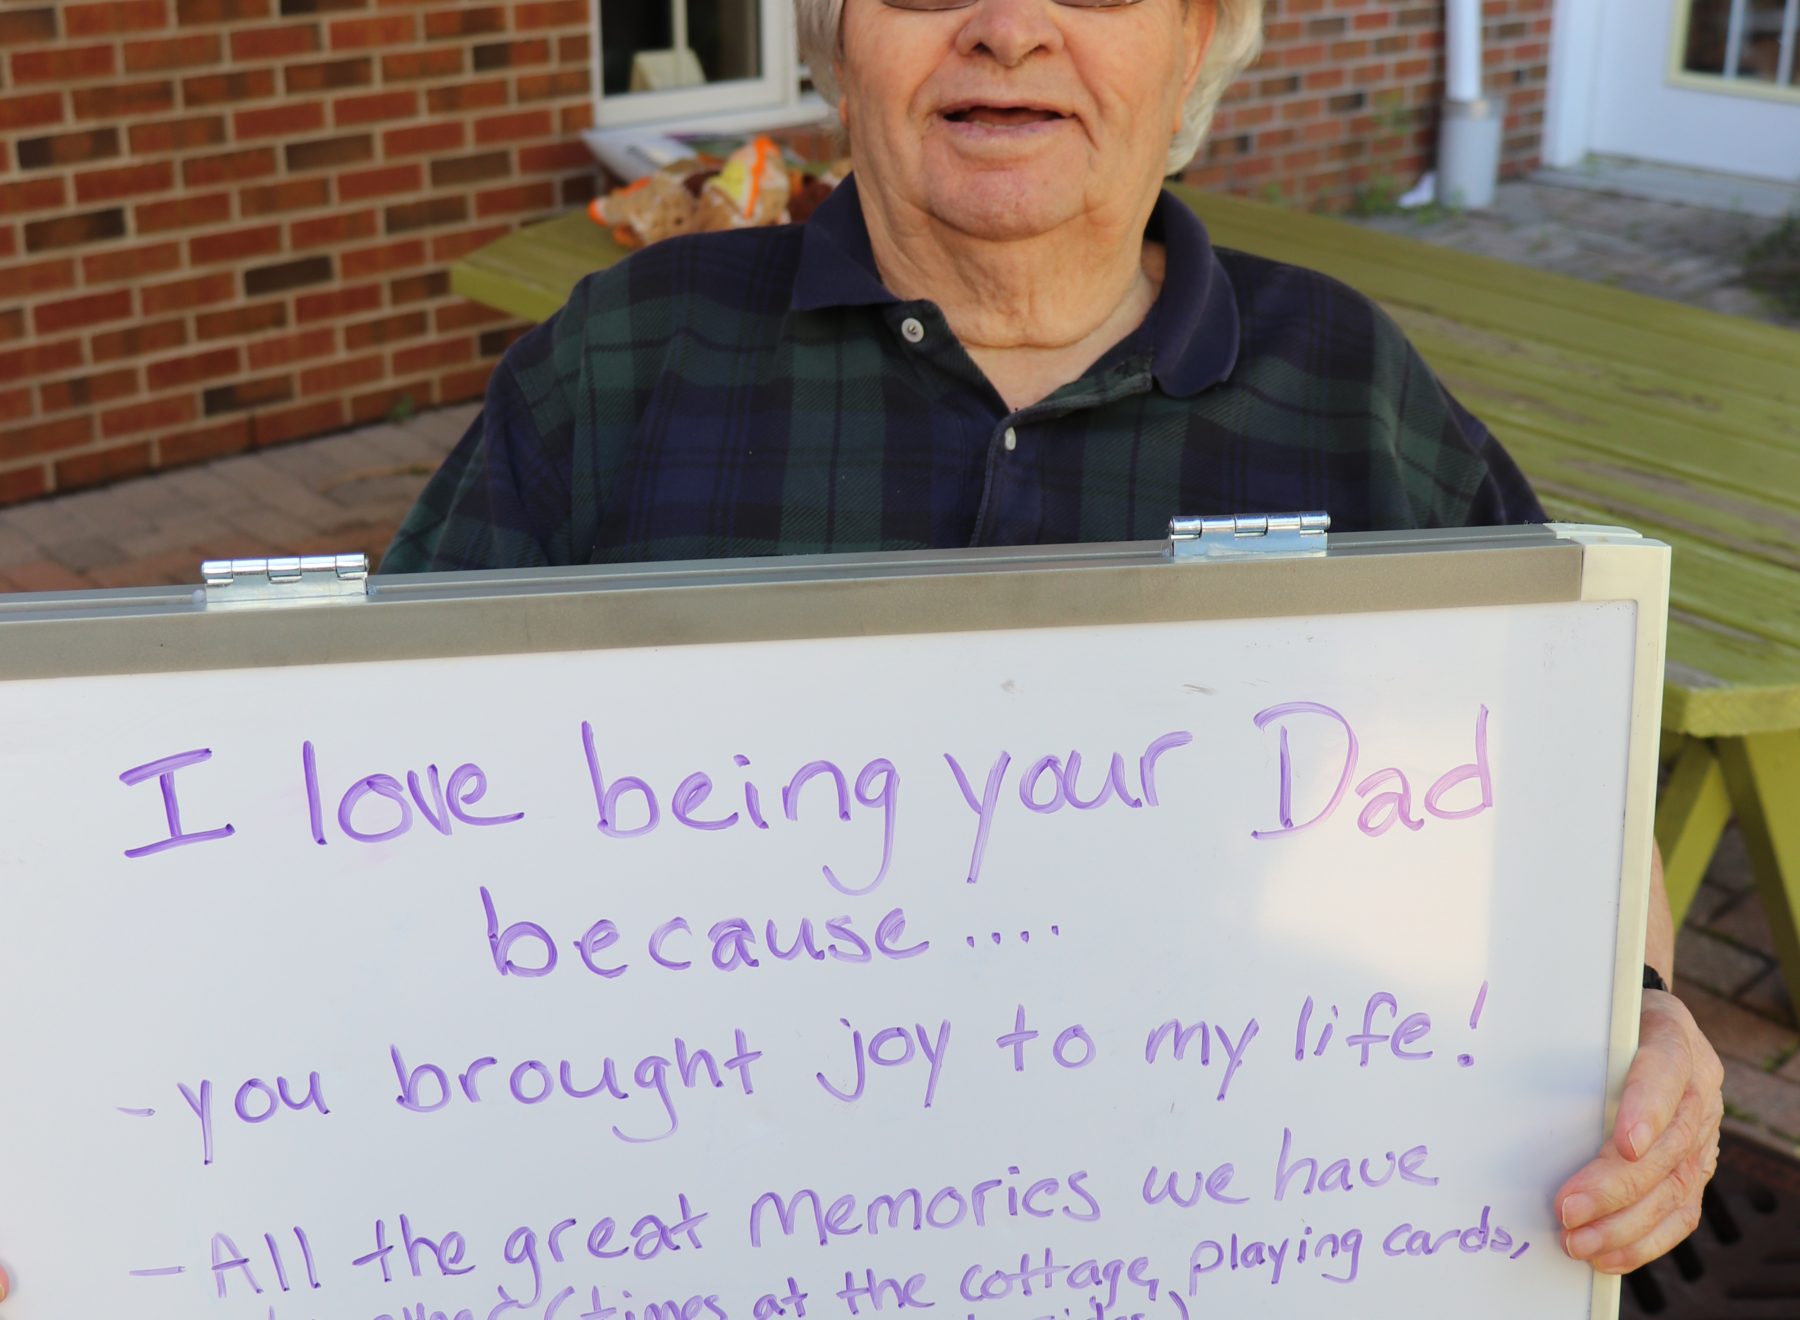 I love being your Dad
because....
- you brought joy to my life!
- All the great memories we have
(times at the cottage, playing cards,